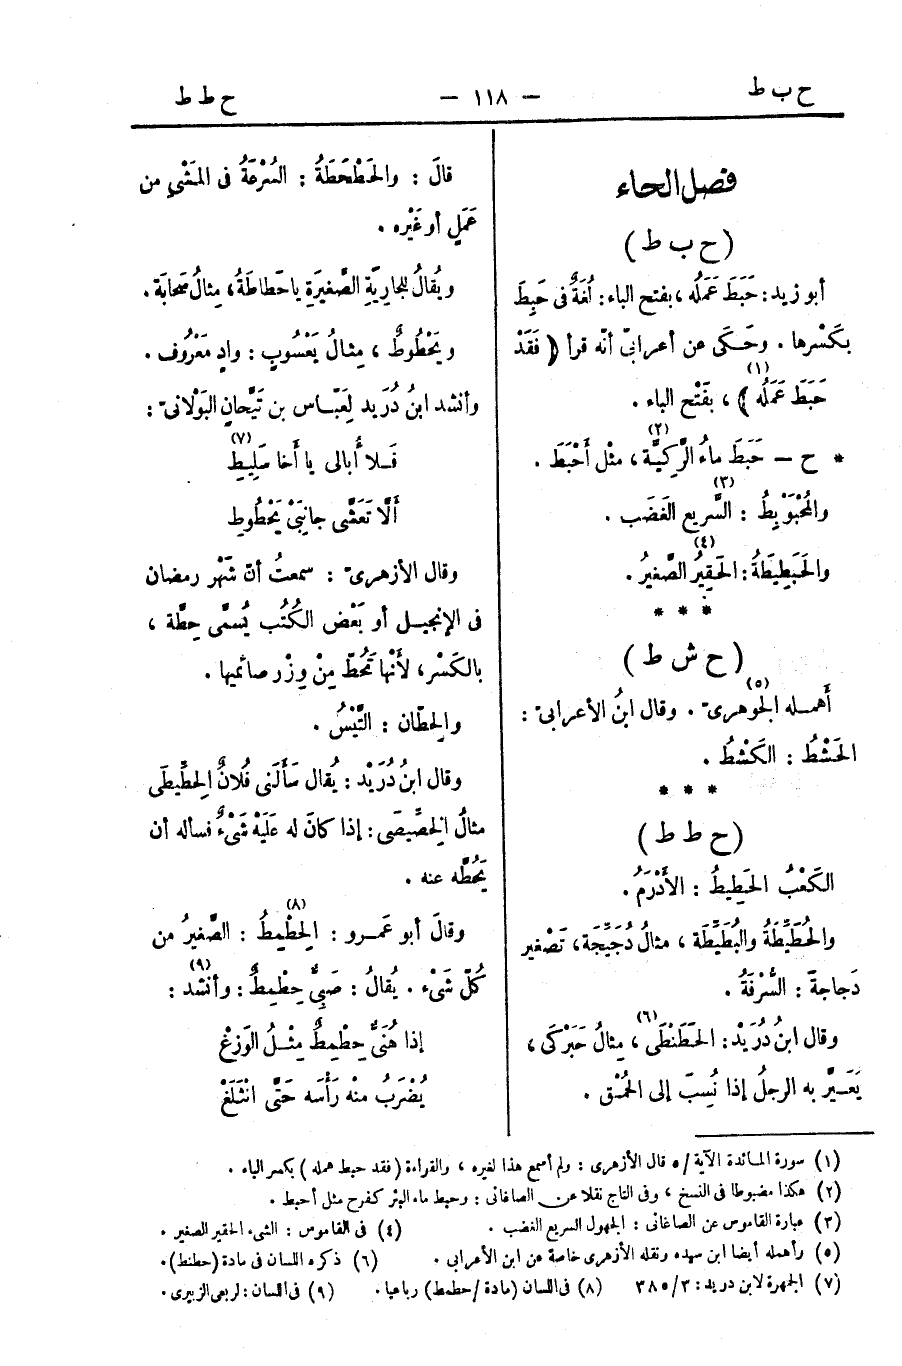 ح ب ط
— ١١٨ —
ح ط ط
فصل الحاء
(ح ب ط)
أبو زيد: حَبَطَ عَمَلُه، بفتح الباء: لُغَةٌ فى حَبِطَ
بكَسْرها. وحَكَى عن أعرابىّ أنّه قرأ ﴿فَقَدْ
حَبَطَ عَمَلُه﴾(١)، بفَتْح الباء.
* ح – حَبَطَ ماءُ الرَّكِيَّة(٢)، مثْل أَحْبَطَ.
والمُحْبَوْبِطُ: السَّريع الغَضَب(٣).
والحَبَطِيطَةُ: الحَقِيرُ الصَّغيرُ(٤).
* * *
(ح ش ط)
أَهمله الجوهرىّ(٥). وقال ابنُ الأعرابىّ:
الحَشْطُ: الكَشْطُ.
* * *
(ح ط ط)
الكَعْبُ الحَطِيطُ: الأَدْرَمُ.
والحُطَيِّطَةُ والبُطَيِّطَة، مثالُ دُجَيِّجَة، تَصْغير
دَجاجة: السُّرْفَةُ.
وقال ابنُ دُرَيْد: الحَطَنْطَى(٦)، مثالُ حَبَرْكَى،
يُعَيَّر به الرجلُ إذا نُسِبَ إلى الحُمْق.
قالَ: والحَطْحَطَةُ: السُرْعَةُ فى المَشْىِ من
عَمَلٍ أو غَيْره.
ويُقالُ للجارِيَةِ الصَّغيرَةِ يا حَطاطَةُ، مِثالُ سَحابَة.
ويَحْطُوطٌ، مِثالُ يَعْسُوبٍ: وادٍ مَعْرُوف.
وأنشد ابنُ دُرَيد لِعَبّاس بن تَيَّحانٍ البَوْلانىّ:
فَلا أُبالى يا أَخا سَلِيطِ(٧)
أَلَّا تَعَشَّى جانِبَىْ يَحْطُوطِ
وقال الأزهرىّ: سمعتُ أنّ شَهْر رمضان
فى الإنجيل أو بَعْض الكُتُب يُسمَّى حِطَّة،
بالكَسْر، لأنّها تَحُطّ مِنْ وِزْر صائميها.
والحِطّان: التَّيْسُ.
وقال ابنُ دُرَيْد: يُقال سَأَلَنى فُلانٌ الحِطِّيطَى
مثالُ الخِصِّيصَى: إذا كانَ له عَلَيْه شَىْءٌ فسأله أن
يَحُطَّه عنه.
وقالَ أبو عَمرو: الحِطْمِطُ(٨): الصَّغيرُ من
كُلّ شَىْء. يُقالُ: صَبِىٌّ حِطْمِطٌ(٩): وأنشد:
إذا هُنَىٌّ حِطْمِطٌ مِثْلُ الوَزَغْ
يُضْرَبُ منْه رَأْسُه حَتَّى انْثَلَغْ
(١) سورة المائدة الآية / ٥ قال الأزهرى: ولم أسمع هذا لغيره، والقراءة (فقد حبط عمله) بكسر الباء.
(٢) هكذا مضبوطا فى النسخ، وفى التاج نقلا عن الصاغانى: وحبط ماء البئر كفرح مثل أحبط.
(٣) عبارة القاموس عن الصاغانى: الجهول السريع الغضب. (٤) فى القاموس: الشىء الحقير الصغير.
(٥) وأهمله أيضا ابن سيده ونقله الأزهرى خاصة عن ابن الأعرابى. (٦) ذكره اللسان فى مادة (حطنط).
(٧) الجمهرة لابن دريد: ٣/٣٨٥ (٨) فى اللسان (مادة / حطمط) رباعيا. (٩) فى اللسان: لربعى الزبيرى.